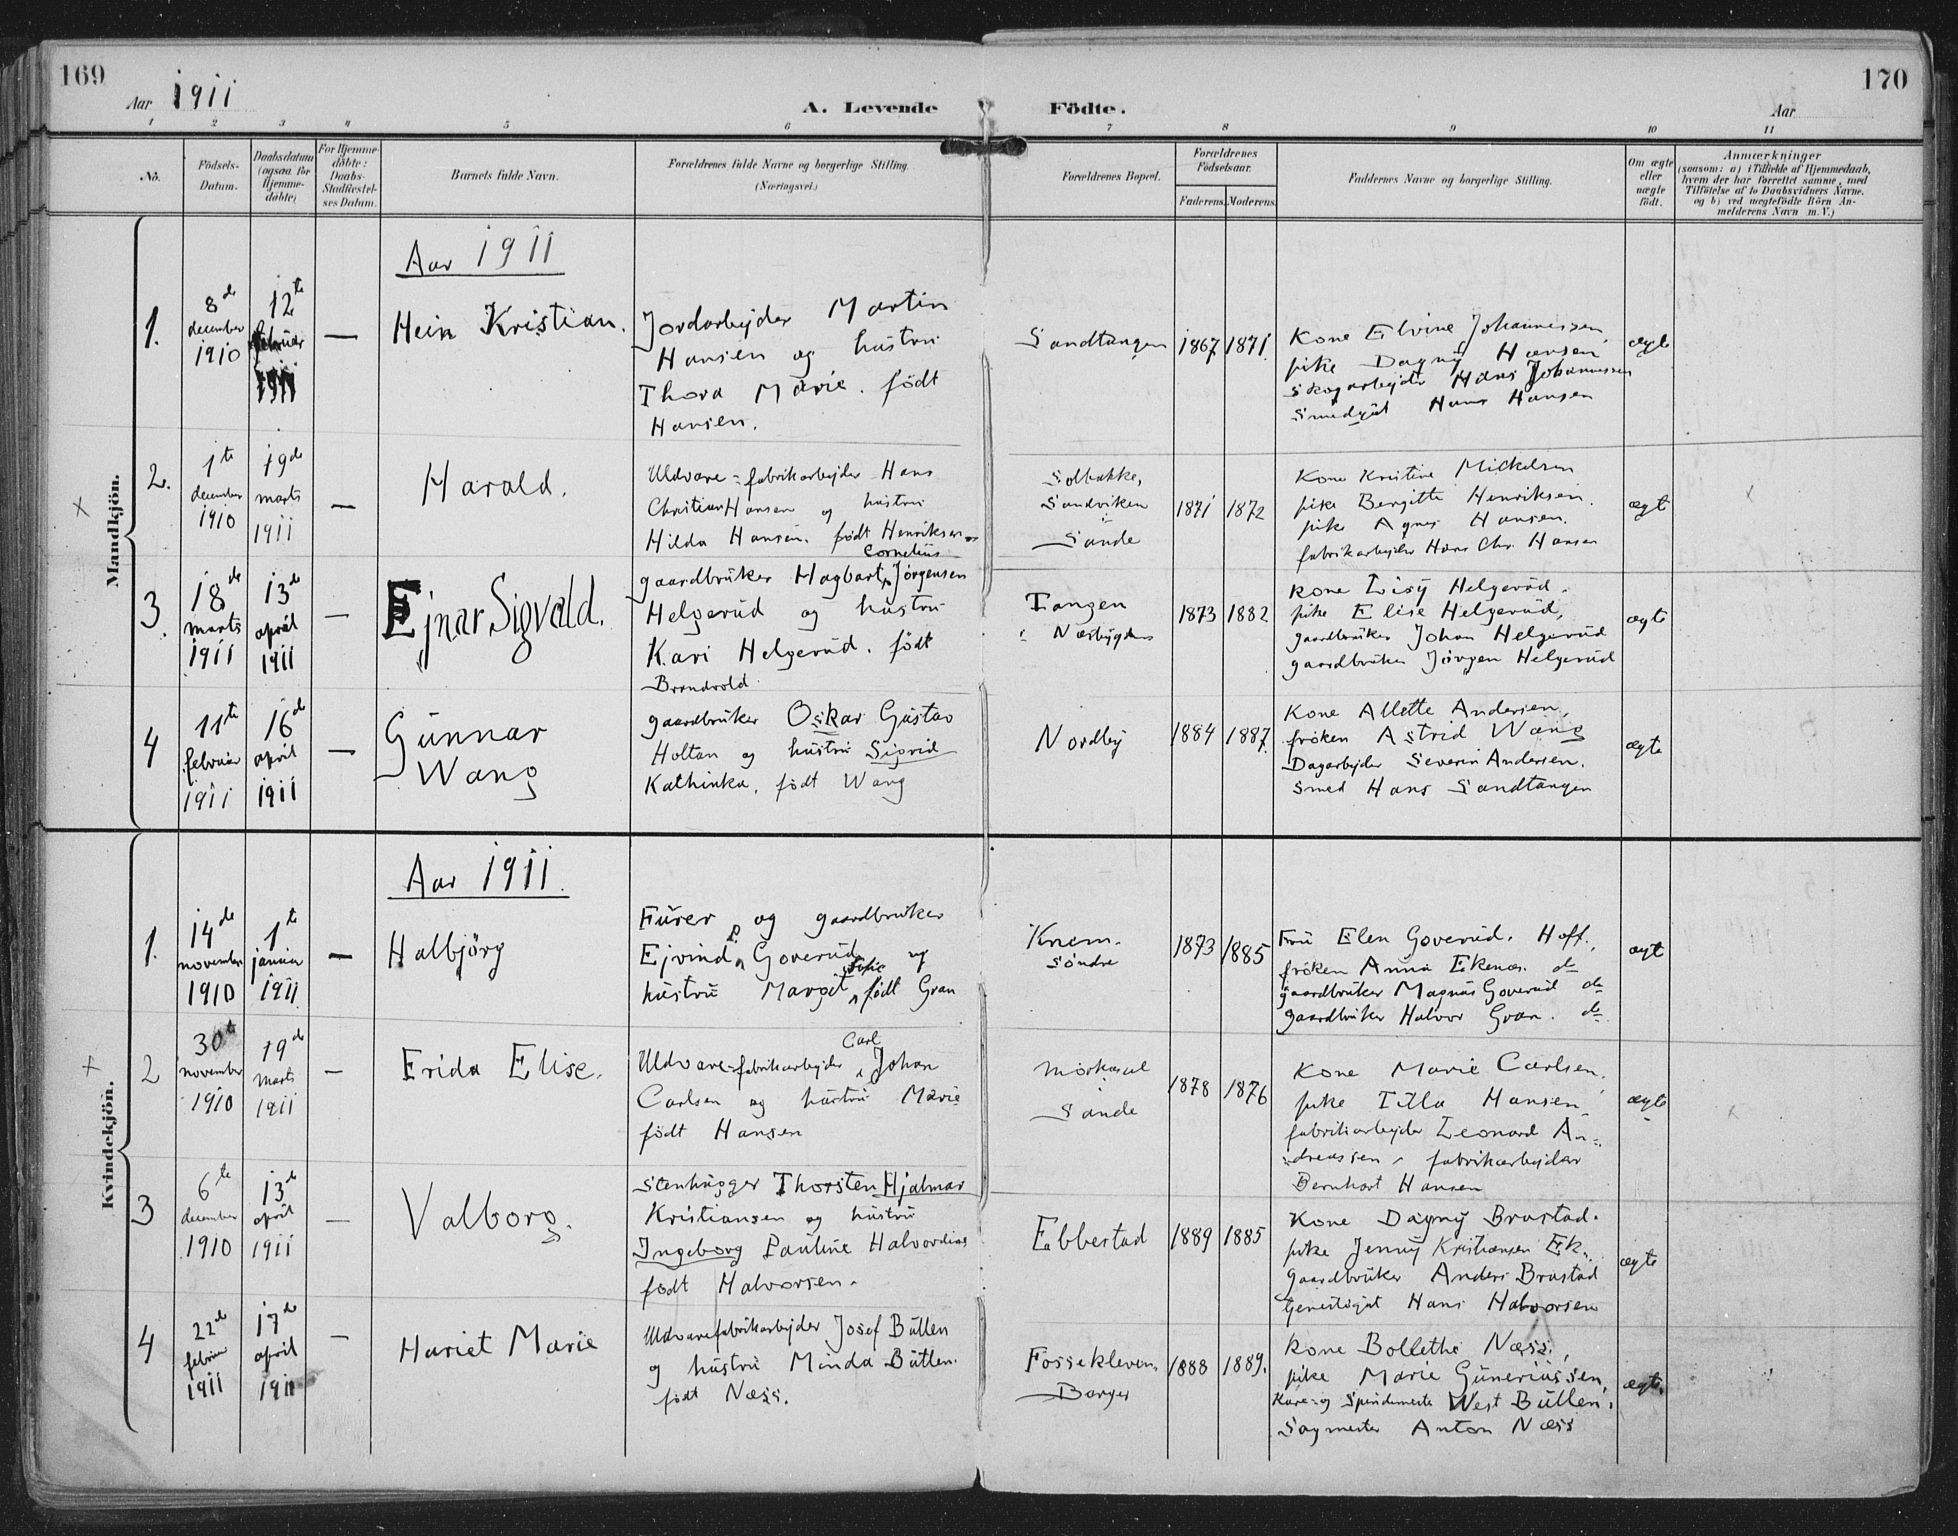 169
Aar 1911
A. Levende Födte.
Aar
170
1 2 3 4 5 6 7 8 9 10 11
No.
Födsels-Datum.
Daabsdatum (ogsaa for Hjemme-döbte)
For Hjemme-döbte: Daabs-Stadfæstel-ses Datum.
Barnets fulde Navn.
Forældrenes fulde Navne og borgerlige Stilling. (Næringsvei.)
Forældrenes Bopæl.
Forældrenes Födselsaar.
Faderens. Moderens.
Faddernes Navne og borgerlige Stilling.
Om ægte eller uægte födt.
Anmærkninger
(saasom: a) i Tilfælde af Hjemmedaab, hvem der har forrettet samme, med Tilföielse af to Daabsvidners Navne, og b) ved uægtefödte Börn An-melderens Navn m. V.)
Mandkjön.
Aar 1911
1.
8de december 1910
12te februar 1911
—
Hein Kristian.
Jordarbejder Martin
Hansen og hustru
Thora Marie. født
Hansen.
Sandtangen
1867
1871
Kone Elvine Johannessen
pike Dagny Hansen
Skogarbejder Hans Johannessen
Smedgut Hans Hansen
ægte
2.
1te december 1910
19de marts 1911
—
Harald.
Uldvare-fabrikarbejder Hans
Christian Hansen og hustru
Hilda Hansen. født Henriksen
Solbakke,
Sandviken
i
Sande
1871
1872
Kone Kristine Mickelsen
pike Bergitte Henriksen.
pike Agnes Hansen.
fabrikarbejder Hans Chr. Hansen
ægt
x
3.
18de marts 1911
13de april 1911
—
Ejnar Sigvald.
Cornelius
gaardbruker Hagbart Jørgensen
Helgerud og hustru
Kari Helgerud. født
Brandvold.
Tangen
i Næsbygden
1873
1882
Kone Lisy Helgerud.
pike Elise Helgerud,
gaardbruker Johan Helgerud
gaardbruker Jørgen Helgerud
ægte
4
11te februar 1911
16de april 1911
—
Gunnar
Wang
gaardbruker Oskar Gustav
Holtan og hustru Sigrid
Kathinka, født Wang
Nordby
1884
1887.
Kone Allette Andersen,
frøken Astrid Wang
Dagarbejder Severin Andersen.
Smed Hans Sandtangen
ægte
Kvindekjön.
Aar 1911.
1.
14de november 1910
1te januar 1911
—
Halbjörg
Furer og gaardbruker
Ejvind P. Goverud og
hustru Margit Sofie født Gran
Knem.
Søndre
1873
1885
Fru Elen Goverud. Hoff.
frøken Anna Ekenæs. do
gaardbruker Magnus Goverud do
gaardbruker Halvor Gran. do
ægt
2
30te november 1910
19de marts 1911
—
Frida Elise.
Carl
Uldvare-fabrikarbejder Johan
Carlsen og hustru Marie
født Hansen
i
Sande
1878
1876
Kone Marie Carlsen.
pike Tilla Hansen
fabrikarbejder Leonard An-
dreassen, fabrikarbejder
Bernhart Hansen
ægte
x
3
6te december 1910
13de april 1911
—
Valborg.
Stenhugger Thorsten Hjalmar
Kristiansen og hustru
Ingeborg Pauline Halvordine
født Halvorsen.
Ebbestad
1889
1885
Kone Dagny Brastad.
pike Jenny Kristiansen Ek.
Gaardbruker Anders Brastad
tjenestegut Hans Halvorsen
ægte
4
22de februar 1911
17de april 1911
—
Hariet Marie
Uldvarefabrikarbejder Josef Bullen
og hustru Minda Bullen.
født Næss.
Fossekleven.
Berger
1888
1889.
Kone Bollethe Næss,
pike Marie Guneriussen,
Kare- og Spindemester West Bullen,
Sagmester Anton Næss
ægte.